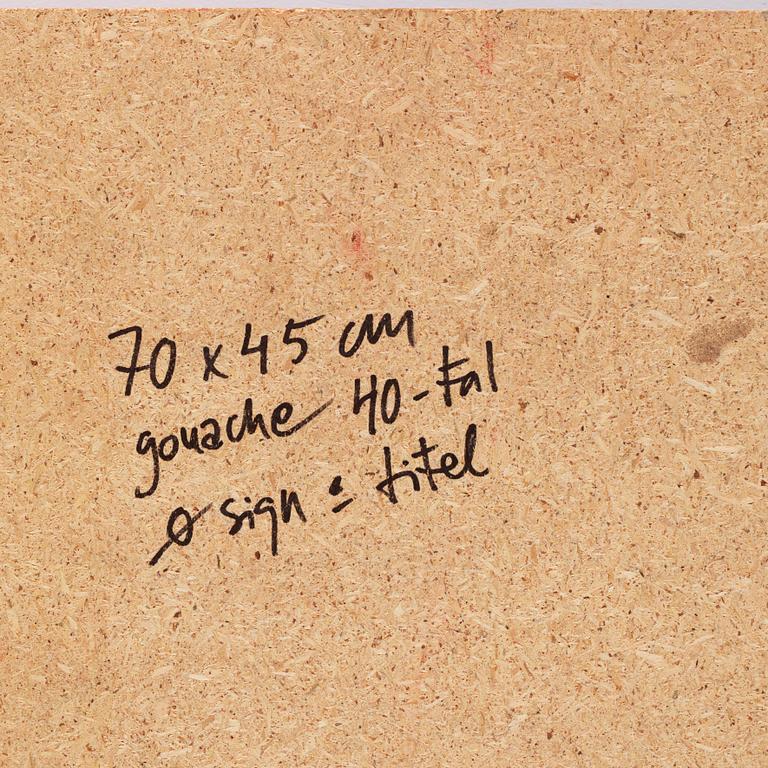 70 x 45 cm
gouache 40-tal
Ø sign & titel